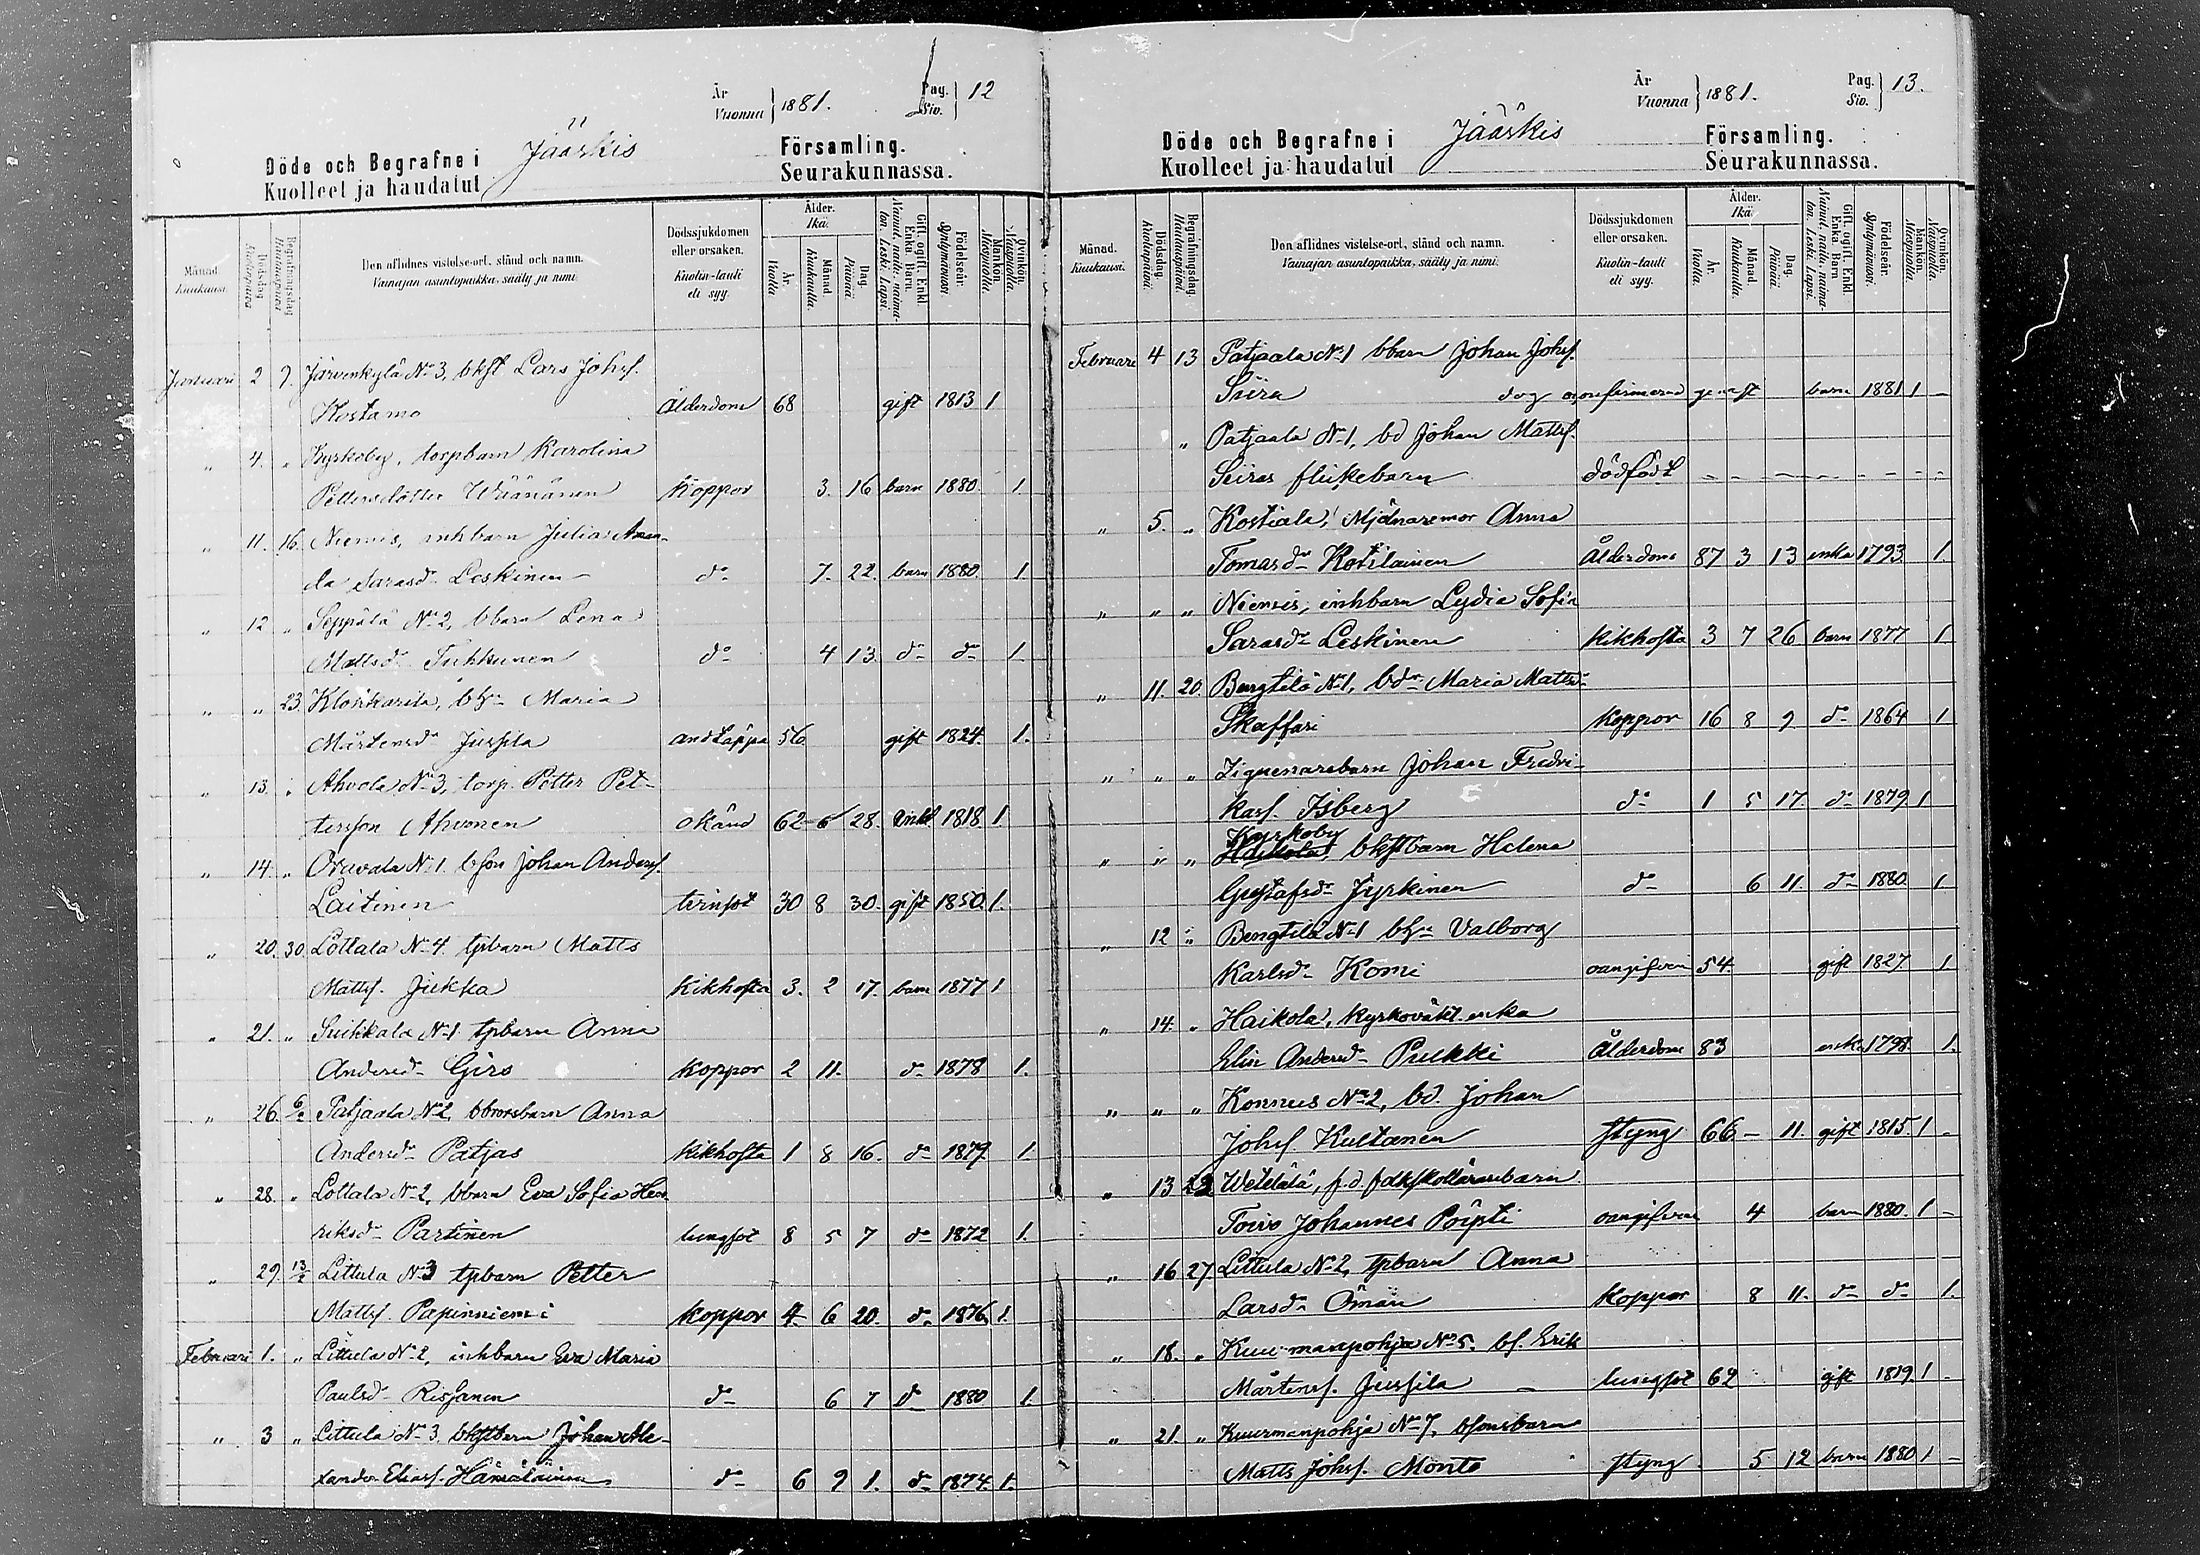 År
Vuonna } 1881.
Pag.
Siv. } 12
Döde och Begrafne i Jääskis Församling.
Kuolleet ja haudatut Seurakunnassa.
Månad.
Kuukausi.
Dödsdag.
Kuolinpäivä
Begrafningsdag
Hautauspäivä
Den aflidnes vistelse-ort, stånd och namn.
Vainajan asuntopaikka, sääty ja nimi.
Dödssjukdomen
eller orsaken.
Kuolin-tauti
eli syy.
Ålder.
Ikä.
År.
Vuotta
Månad
Kuukautta.
Dag.
Päivää.
Gift, ogift, Enkl.
Enka. Barn.
Nainut, naima-
ton. Leski. Lapsi.
Födelseår.
Syntymävuosi.
Mankön.
Miespuolia.
Qvinkön.
Naispuolia.
Januari 2 9. Järvenkylä No 3, bkst Lars Johsf.
Kostamo Ålderdom 68 gift 1813 1
" 4. " Kyrkoby, torpbarn Karolina
Pettersdotter Wäänänen Koppor 3. 16 barn 1880. 1.
" 11. 16. Niemis, inhbarn Julia Aman-
da Sarasdr Leskinen do 7. 22. barn 1880. 1.
" 12 " Seppälä No 2, bbarn Lena
Mattsdr Tuhkunen do 4 13 do do 1.
" " 23. Maria
Mårtensdr Jussila andtäppa 56. gift 1824. 1.
" 13. " Ahvola No 3, torp. Petter Pet-
tersson Ahvonen okänd 62 6 28. Enkl 1818. 1
" 14. " Oravala No 1. bson Johan Andersf.
Laitinen 30 8 30. gift 1850. 1.
" 20. 30. Lottala No 4. tpbarn Matts
Mattsf. Jukka Kikhosta 3. 2 17. barn 1877 1
" 21. " Suikkala No 1 tpbarn Anna
Andersdr Girs Koppor 2 11. do 1878 1.
" 26. 6/2 Patjaala No 2, bbrorsbarn Anna
Andersdr Patjas Kikhosta 1 8 16. do 1879. 1.
" 28. " Lottala No 2, bbarn Eva Sofia Hen-
riksdr Partinen lungsot 8 5 7 do 1872 1.
" 29. 13/2 Littula No 3 tpbarn Petter
Mattsf. Papinniemi Koppor 4 6 20. do 1876. 1.
Februari 1. " Littula No 2, inhbarn Eva Maria
Paulsdr Reijonen do 6 7 do 1880 1.
" 3 " Littula No 3. bkstbarn Johan Ale-
xander Eliasf. Hämäläinen do 6 9 1. do 1874. 1.
År
Vuonna } 1881.
Pag.
Siv. } 13.
Döde och Begrafne i Jääskis Församling.
Kuolleet ja haudatut Seurakunnassa.
Månad.
Kuukausi.
Dödsdag.
Kuolinpäivä.
Begrafningsdag
Hautauspäivä.
Den aflidnes vistelse-ort, stånd och namn.
Vainajan asuntopaikka, sääty ja nimi.
Dödssjukdomen
eller orsaken.
Kuolin-tauti
eli syy.
Ålder.
Ikä.
År.
Vuotta.
Månad
Kuukautta.
Dag.
Päivää.
Gift, ogift, Enkl.
Enka. Barn
Nainut, naima-
ton. Leski. Lapsi.
Födelseår.
Syntymävuosi.
Mankön.
Miespuolia.
Qvinkön.
Naispuolia.
Februari 4 13 Patjaala No 1 bbarn Johan Johsf.
Siira dog genast barn 1881 1 -
" Patjaala No 1, bd Johan Mattsf.
Siiras flickebarn dödfödt
" 5. " Kostiala, Mjölnaremor Anna
Tomasdr Kotilainen Ålderdom 87 3 13 enka 1793 1.
" " " Niemis, inhbarn Lydia Sofia
Sarasdr Leskinen Kikhosta 3 7 26 barn 1877 1.
" 11. 20. Bengtilä No 1, bdr Maria Mattsdr
Skaffari Koppor 16 8 9 do 1864 1
" " " Ziguenarebarn Johan Fredri-
karf. Isberg do 1 5 17 do 1879 1
Kyrkoby
" " " bkstbarn Helena
Gustafsdr Jyrkinen do 6 11. do 1880 1
" 12 " Bengtilä No 1 Valborg
Karlsdr Komi oangifven 54. gift 1827 1.
" 14. " Haikola, Kyrkovakt. enka
Elin Andersdr Pulkki Ålderdom 83 enka 1798. 1.
" " " Konnus No 2, bd. Johan
Johsf. Kultanen Styng 66. - 11. gift 1815. 1 -
" 13 22 barn
Toivo Johannes Pöysti oangifven 4 barn 1880. 1 -
" 16 27. Littula No 2, tpbarn Anna
Larsdr Öman Koppor 8 11. do do 1.
" 18. " Kuurmanpohja No 5. bf. Erik
Mårtensf. Jussila lungsot 62 gift 1819 1 -
" 21. " Kuurmanpohja No 7, bsonsbarn
Matts Johsf. Monto Styng 5 12 barn 1880 1 -